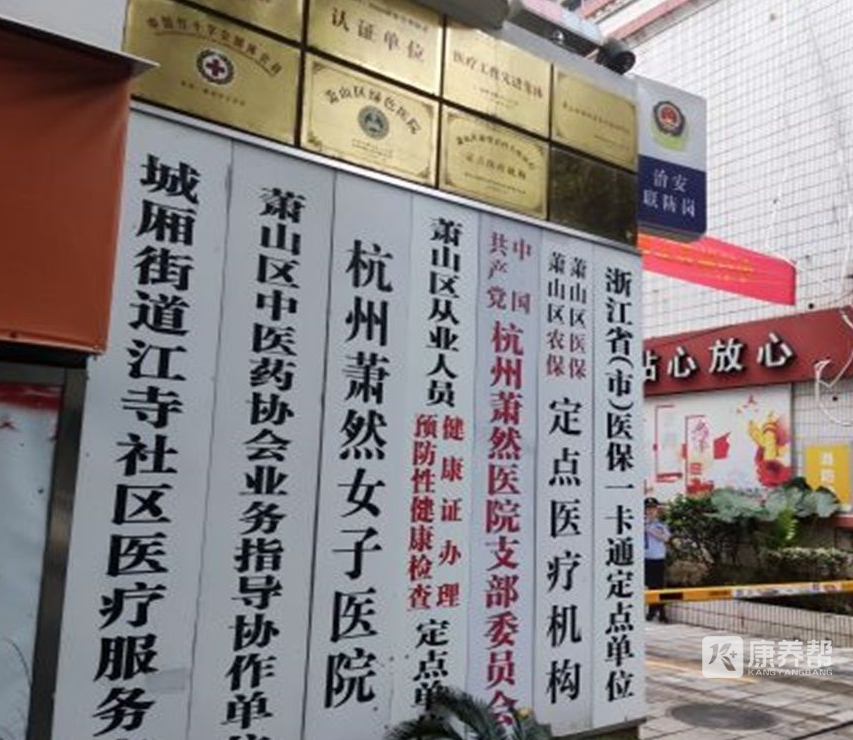 认证单位
医疗工作先进集体
萧山区绿色医院
定点医疗机构
治安
联防岗
城厢街道江寺社区医疗服务
萧山区中医药协会业务指导协作单
杭州萧然女子医院
萧山区从业人员
健康证办理
预防性健康检查
定点单
中国
共产党
杭州萧然医院支部委员会
萧山区医保
萧山区农保
定点医疗机构
浙江省(市)医保一卡通定点单位
心放心
K+
康养帮
KANGYANGBANG